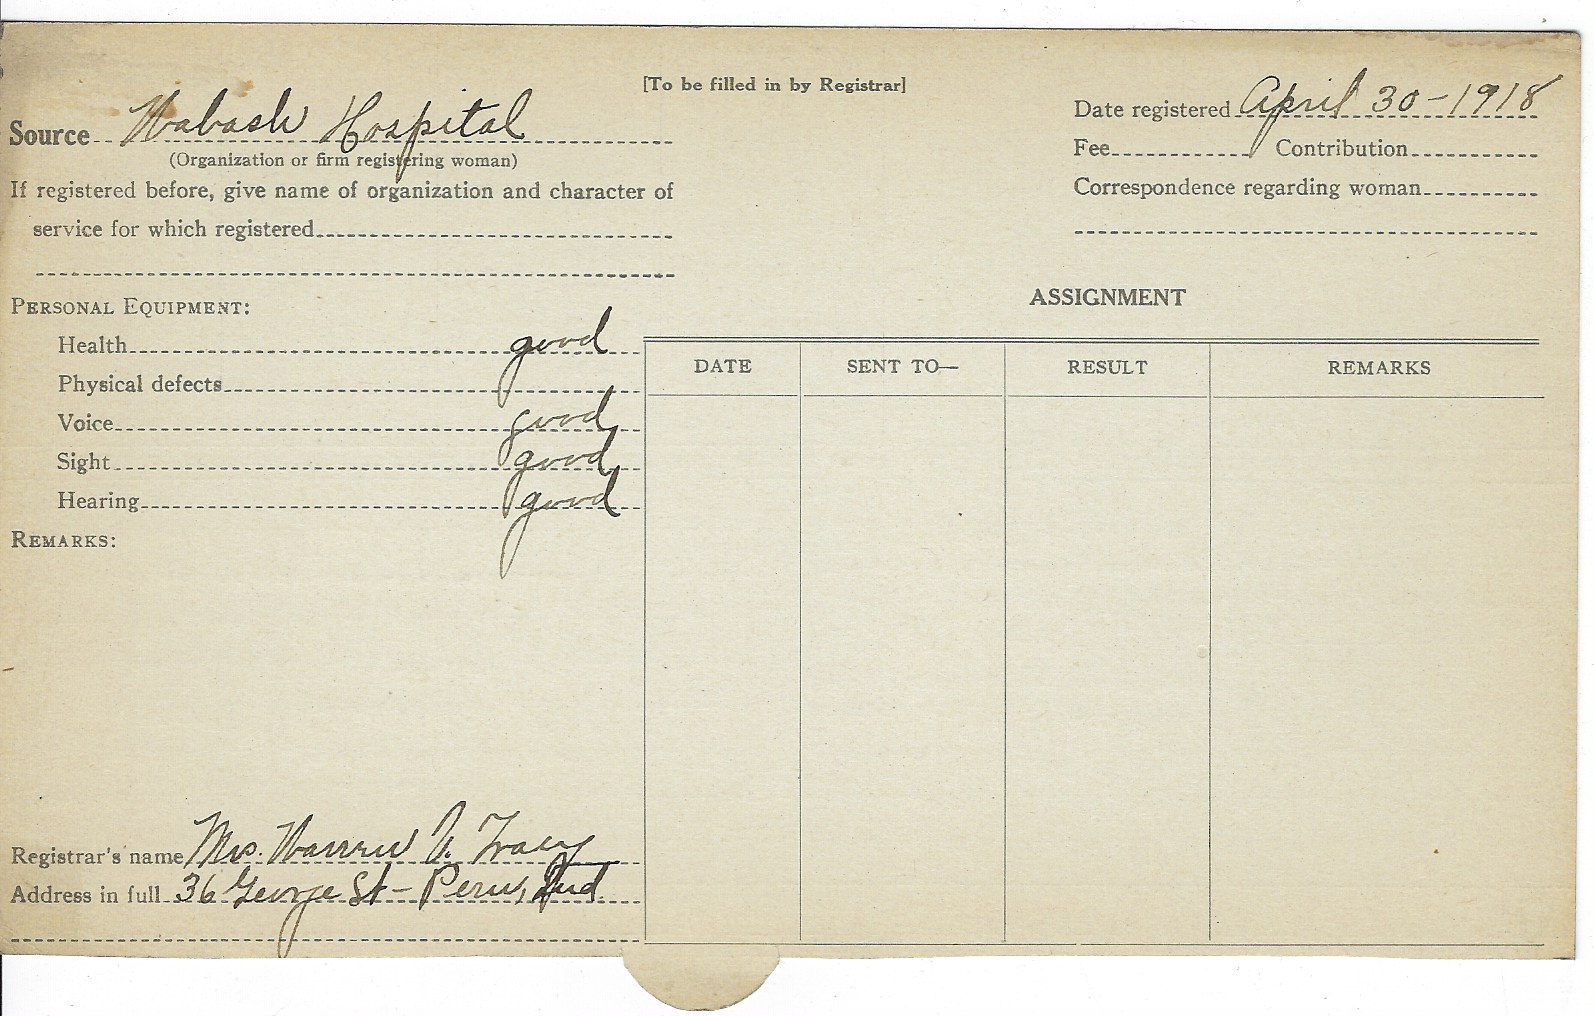 [To be filled in by Registrar]
Source Wabash Hospital
(Organization or firm registering woman)
If registered before, give name of organization and character of
service for which registered
Date registered April 30-1918
Fee Contribution
Correspondence regarding woman
PERSONAL EQUIPMENT:
Health good
Physical defects
Voice good
Sight good
Hearing good
REMARKS:
Registrar's name Mrs. Warren V. Tracy
Address in full 36 George St- Peru, Ind.
ASSIGNMENT
DATE SENT TO— RESULT REMARKS